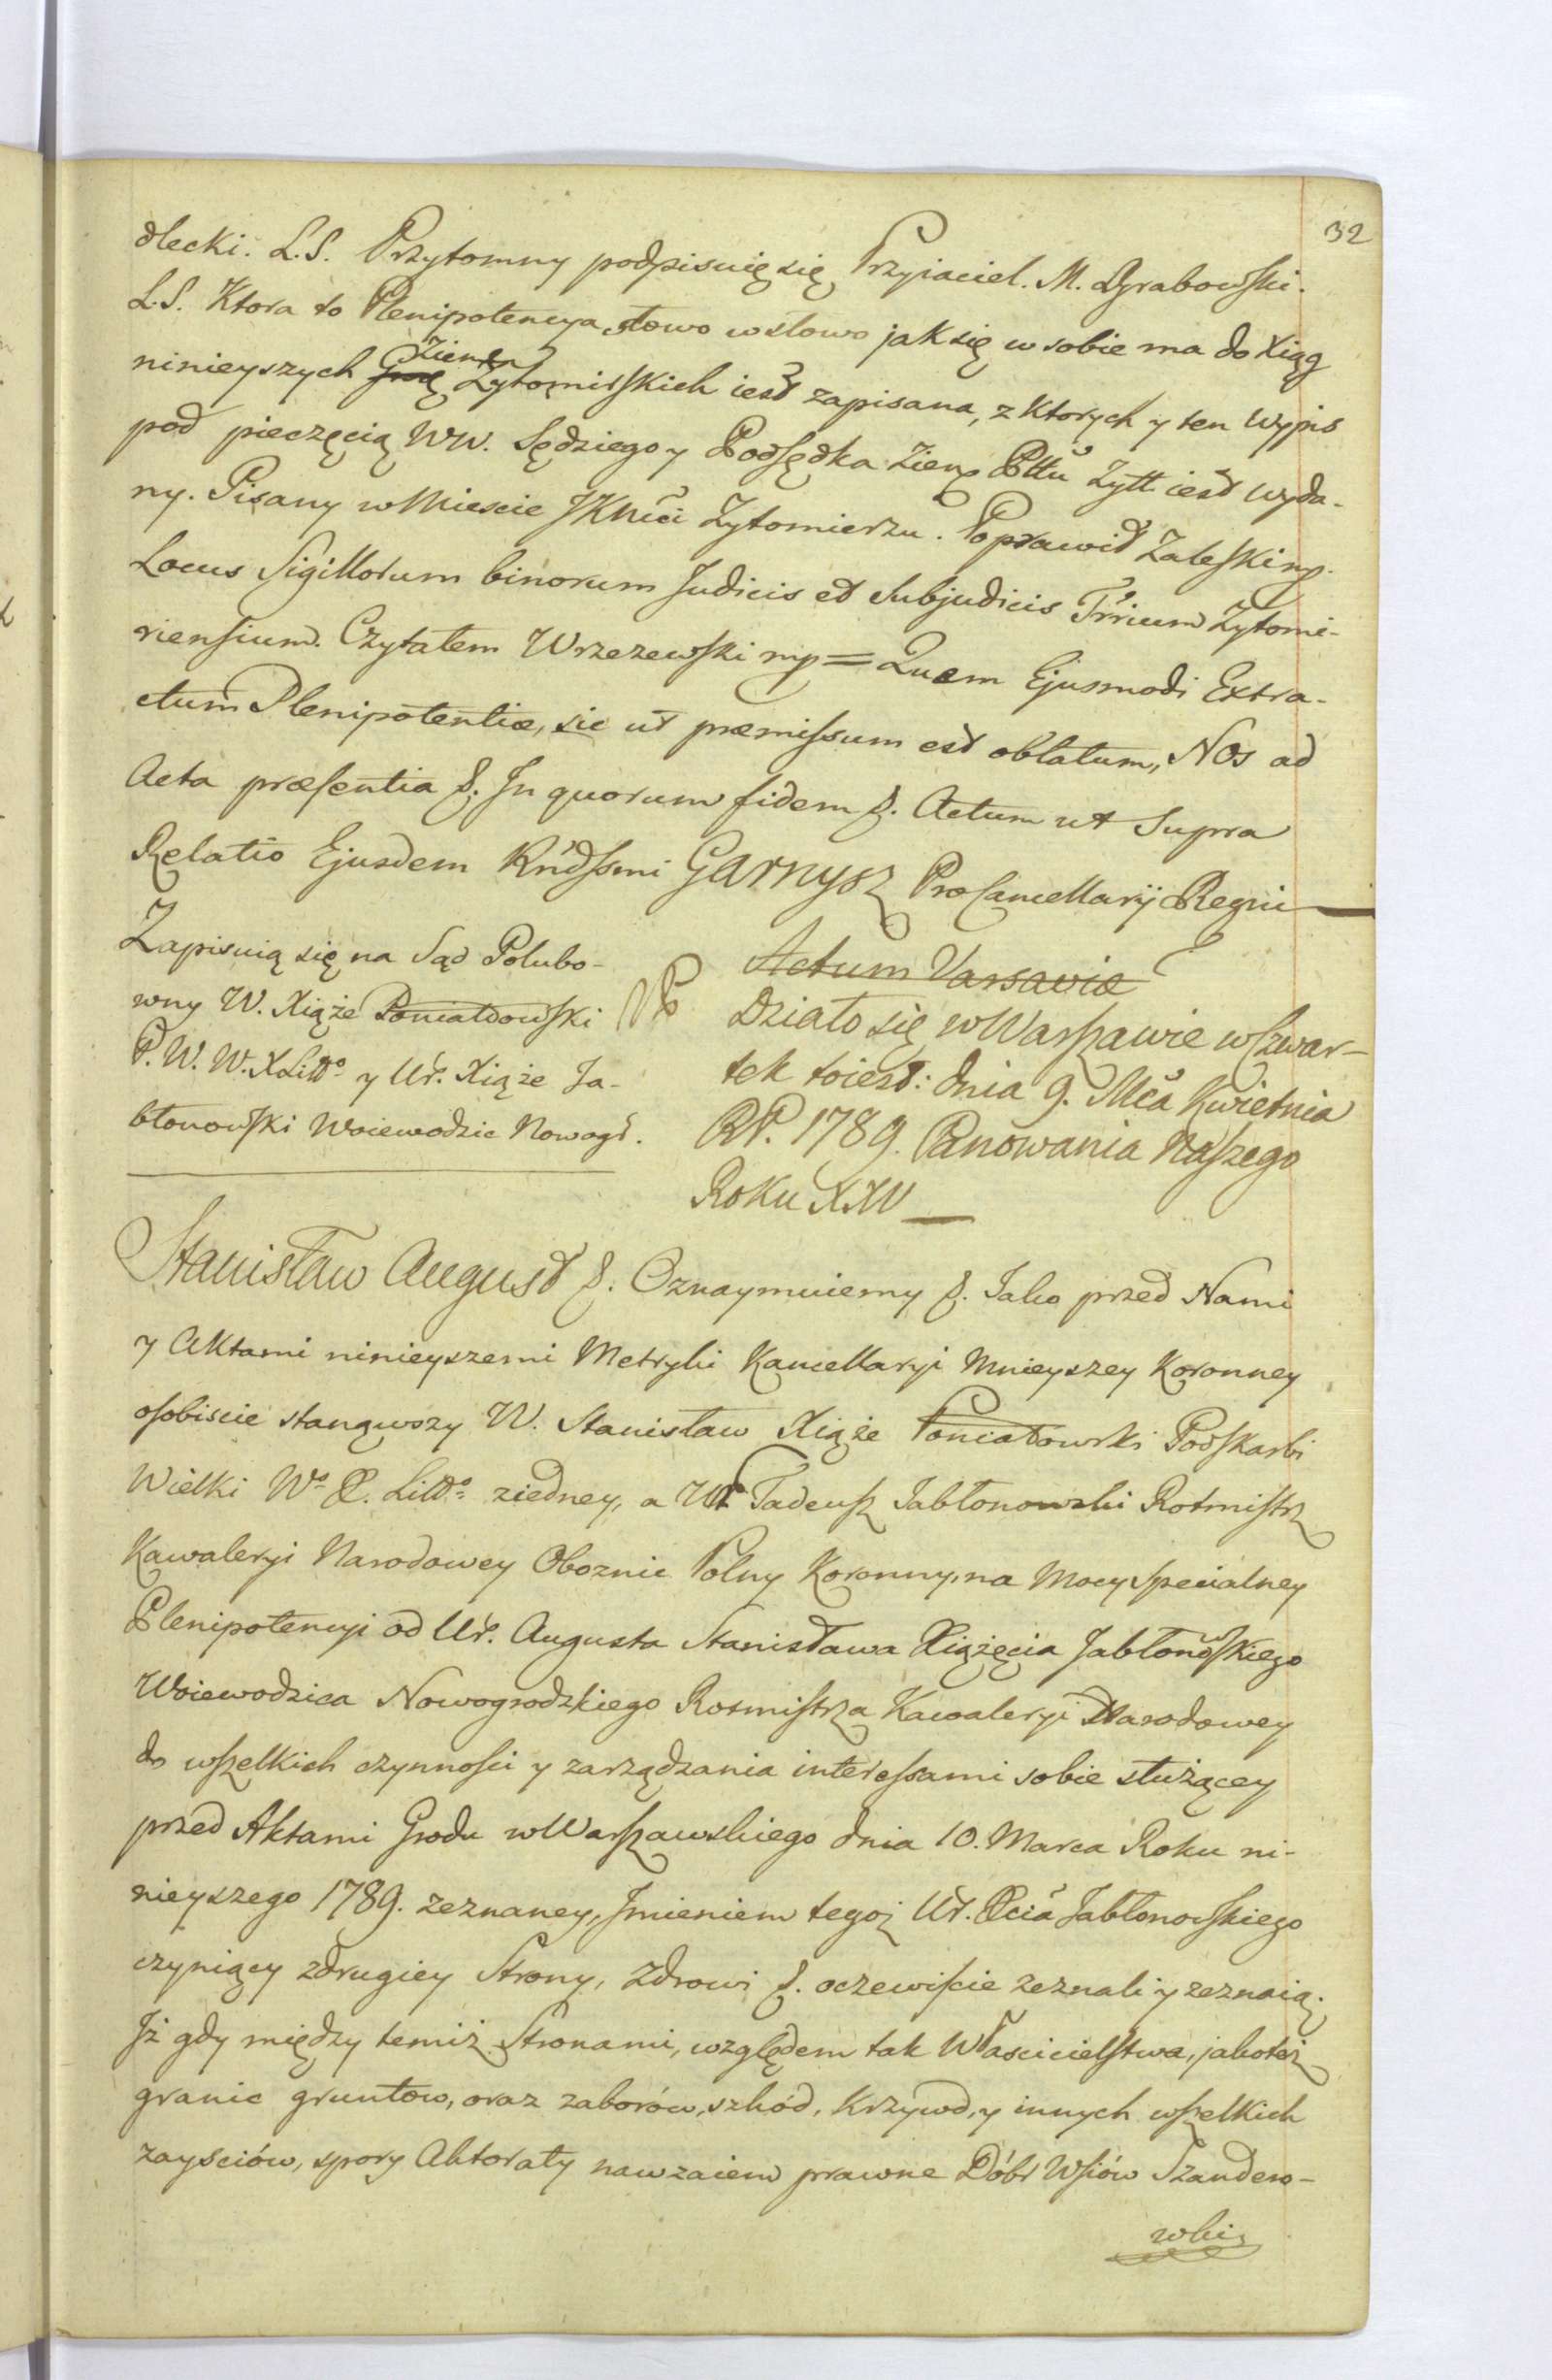 32
dlecki. L.S. Przytomny podpisuię się Przyiaciel. M. Dgrabowski.
L.S. Ktora to Plenipotencya słowo wsłowo jak się w sobie ma do Xiąg
ninieyszych Grod Ziem Zytomirskich iest zapisana, z Ktorych y ten Wypis
pod pieczęcią WW. Sędziego y Podsędka Ziem Pttu Zytt iest wyda-
ny. Pisany w Miescie JKMci Zytomierzu. Poprawił Zaleski mp.
Locus Sigillorum binorum Judicis et Subjudicis Trrium Zytomi-
riensium. Czytałem Wrzezewski mp = Quam Ejusmodi Extra-
ctum Plenipotentiæ, sic ut præmissum est oblatum, Nos ad
Acta præsentia &. In quorum fidem &. Actum ut Supra
Relatio Ejusdem Rndssmi Garnysz Pro Cancellarij Regni
Zapisuią się na Sąd Polubo-
wny W. Xiąże Poniatowski
P. W. W. X Littº y Ur. Xiąże Ja-
błonowski Woiewodzic Nowogr.
Actum Varsaviæ
Działo się w Warszawie w Czwar-
tek toiest: dnia 9. Mca Kwietnia
RP. 1789. Panowania Naszego
Roku XXV
Stanisław August &. Oznaymuiemy &. Iako przed Nami
y Aktami ninieyszemi Metryki Kancellaryi Mnieyszey Koronney
osobiscie stanąwszy W. Stanisław Xiąże Poniatowski Podskarbi
Wielki Wº X. Littº z iedney, a Ur. Tadeusz Jabłonowski Rotmistrz
Kawaleryi Narodowey Oboznic Polny Koronny, na Mocy Specialney
Plenipotencyi od Ur. Augusta Stanisława Xiążęcia Jabłonowskiego
Woiewodzica Nowogrodzkiego Rotmistrza Kawaleryi Narodowey
do wszelkich czynności y zarządzania interessami sobie służącey
przed Aktami Grodu wWarszawskiego dnia 10. Marca Roku ni-
nieyszego 1789. zeznaney, Imieniem tegoż Ur. Xcia Jabłonowskiego
czyniący zdrugiey Strony, Zdrowi &. oczewiscie zeznali y zeznaią.
Iż gdy między temiż Stronami, względem tak Własciciełstwa, jakoteż
granic gruntow, oraz zaborów, szkód, Krzywd, y innych wszelkich
zayściów, spory Aktoraty nawzaiem prawne Dóbr Wsiów Szandero-
wki